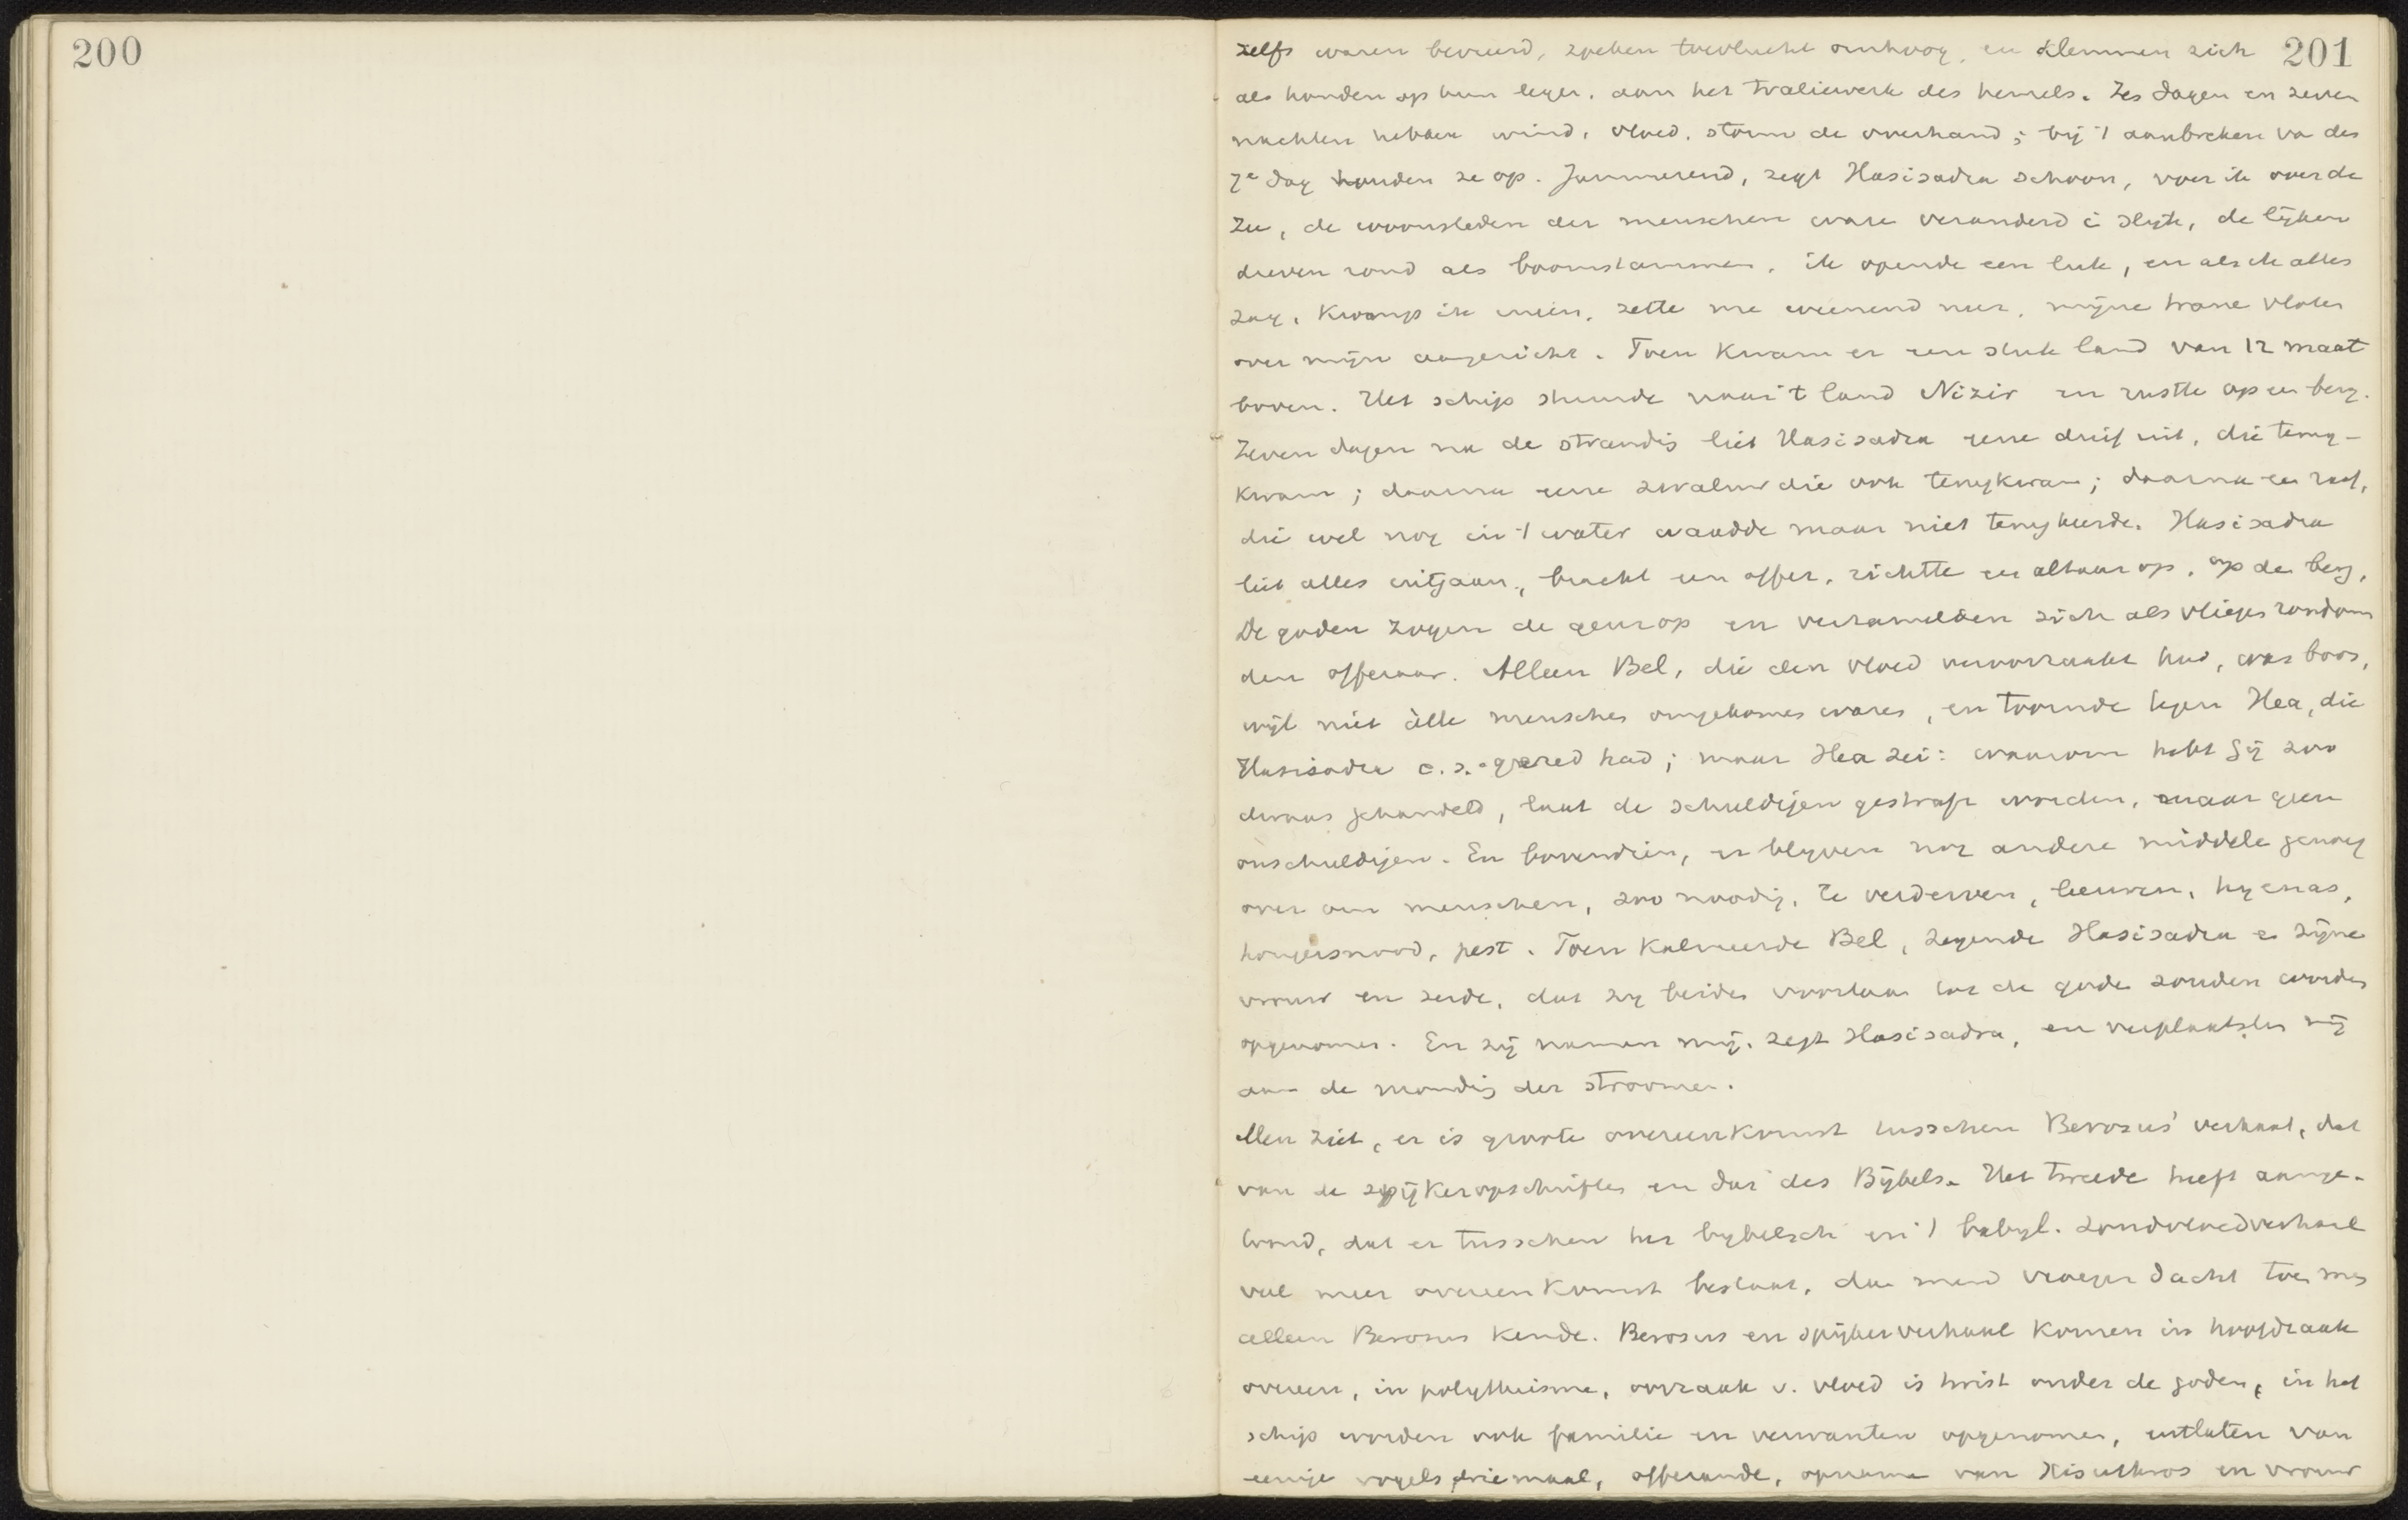 200
201
zelfs waren bevreesd, zoeken toevlucht omhoog, en klemmen zich
als honden op hun leger, aan het traliewerk des hemels. Zes dagen en zeven
nachten hebben wind, vloed, storm de overhand; bij 't aanbreken va des
7e dag houden ze op. Jammerend, zegt Hasisadra schoon, voer ik over de
zee, de woonsteden der menschen ware veranderd i slyk, de lijken
dreven rond als boomstammen, ik opende een luik, en als ik alles
zag, kromp ik ineen, zette me weenend neer, mijne trane vloten
over mijn aangezicht. Toen kwam er een stuk land van 12 maat
boven. Het schip stuurde naar 't land Nizir en rustte op en berg.
Zeven dagen na de strandig liet Hasisadra eene duif uit, die terug-
kwam; daarna eene zwaluw die ook terugkwam; daarna een raaf,
die wel nog in 't water waadde maar niet terugkeerde. Hasisadra
liet alles uitgaan, bracht een offer, richtte een altaar op, op den berg,
De goden zogen de geur op en verzamelden zich als vliegen rondom
den offeraar. Alleen Bel, die den vloed veroorzaakt had, was boos,
wijl niet àlle menschen omgekomen waren, en toornde tegen Hea, die
Hasisadra c.s. gered had; maar Hea zei: waarom hebt gij zoo
dwaas gehandeld, laat de schuldigen gestraft worden, maar geen
onschuldigen. En bovendien, er blyven nog andere middele genoeg
over om menschen, zoo noodig, te verderven, leeuwen, hyenas,
hongersnood, pest. Toen kalmeerde Bel, zegende Hasisadra en zijne
vrouw en zeide, dat zy beiden voortaan tot de goden zouden worden
opgenomen. En zij namen mij, zegt Hasisadra, en verplaatsten mij
aan de mondig der stroomen.
Men ziet, er is groote overeenkomst tusschen Berosus' verhaal, dat
van de spijkeropschriften en dat des Bijbels. Het tweede heeft aange-
toond, dat er tusschen het bybelsch en 't babyl. zondvloedverhaal
veel meer overeenkomst bestaat, dan men vroeger dacht toen men
alleen Berosus kende. Berosus en spijkerverhaal komen in hoofdzaak
overeen, in polytheisme, oorzaak v. vloed is twist onder de goden, in het
schip worden ook familie en verwanten opgenomen, uitlaten van
eenige vogels driemaal, offerande, opname van Xisuthros en vrouw